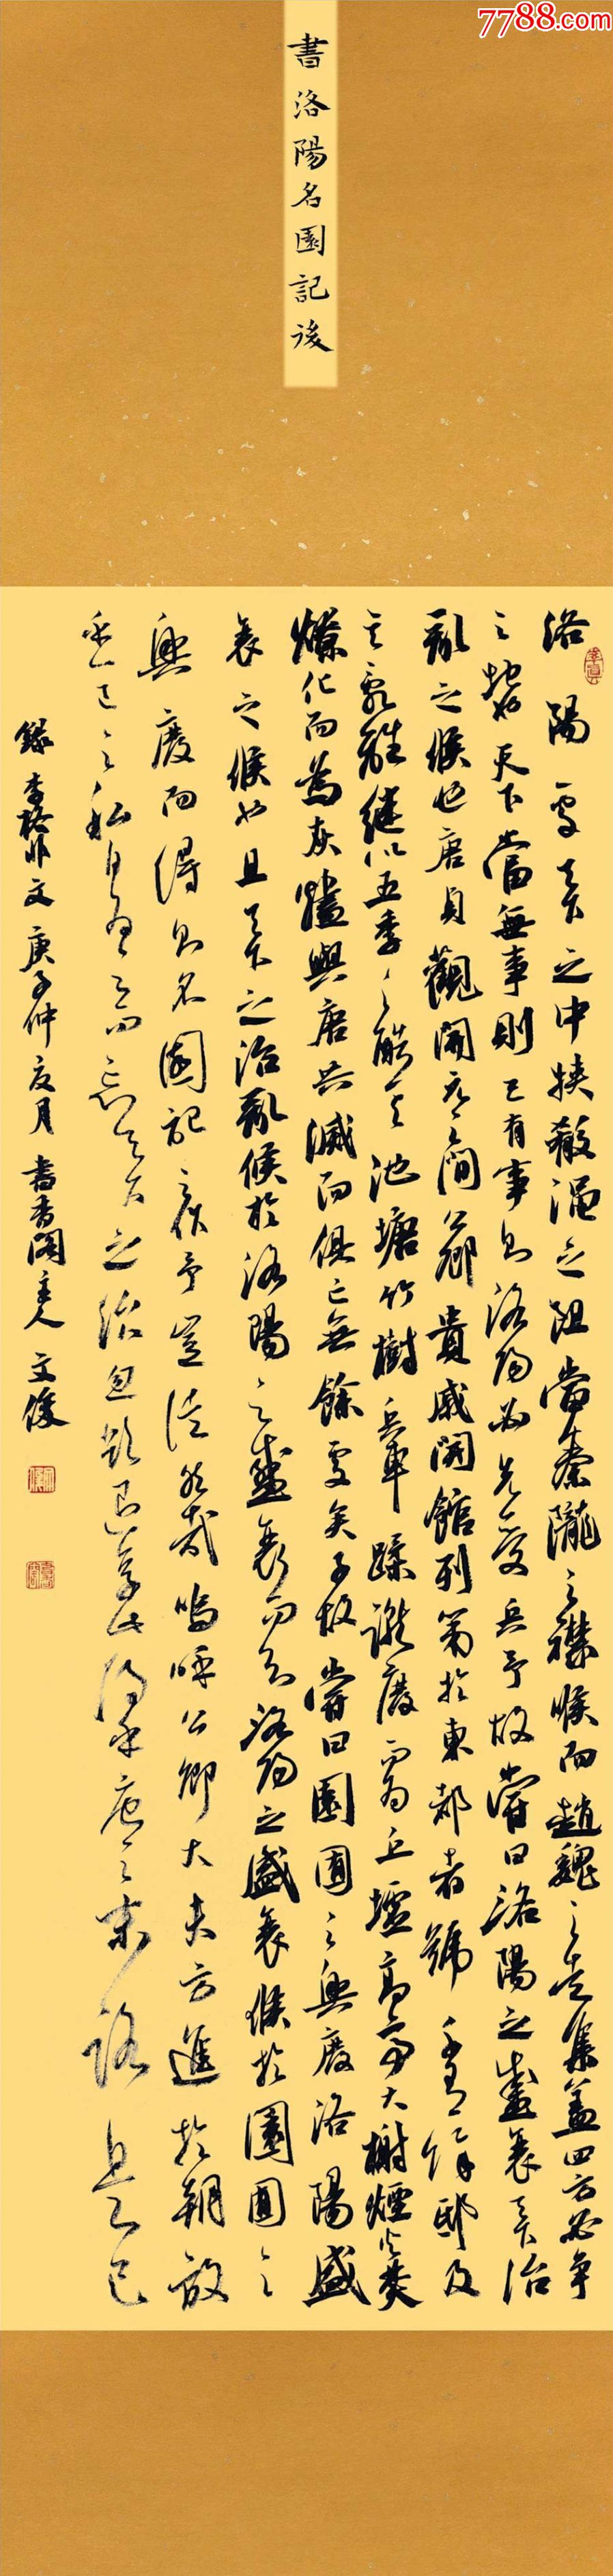 7788.com
書洛陽名園記後
洛陽處天下之中挾殽澠之阻當秦隴之襟喉而趙魏之走集蓋四方必爭
之地也天下當無事則已有事則洛陽必先受兵予故嘗曰洛陽之盛衰天下治
亂之候也唐貞觀開元之間公卿貴戚開館列第於東都者號千有餘邸及
其亂離繼以五季之酷其池塘竹樹兵車蹂蹴廢而為丘墟高亭大榭煙火焚
燎化而為灰燼與唐共滅而俱亡無餘處矣予故嘗曰園圃之興廢洛陽盛
衰之候也且天下之治亂候於洛陽之盛衰而知洛陽之盛衰候於園圃之
興廢而得則名園記之作予豈徒然哉嗚呼公卿大夫方進於朝放
乎一己之私自為之而忘天下之治忽欲退享此得乎唐之末路是已
錄李格非文庚子仲夏月書香閣主人文俊